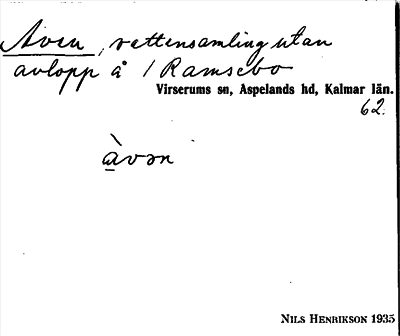 Aven, vattensamling utan
avlopp å / Ramsebo
Virserums sn, Aspelands hd, Kalmar län.
62.
àvən
NILS HENRIKSON 1935